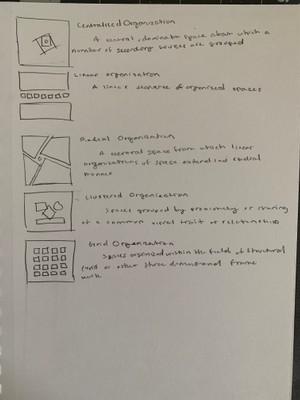 Centralized Organization
A central, dominant space about which a
number of secondary spaces are grouped
Linear organization
A linear sequence of organized spaces
Radial Organization
A central space from which linear
organizations of space extend in a radial
manner
Clustered Organization
Spaces grouped by proximity or sharing
of a common visual trait or relationship
Grid Organization
Spaces organized within the field of structural
or other three dimensional frame
work